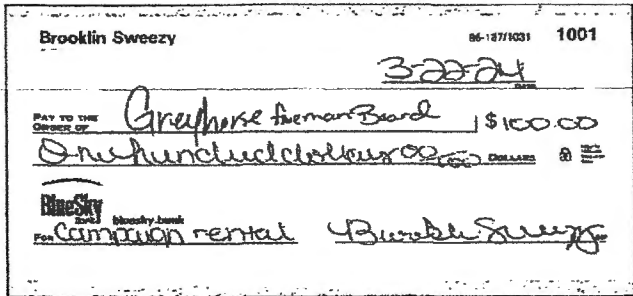 Brooklin Sweezy 86-187/1031 1001
3-22-24
DATE
PAY TO THE ORDER OF Greyhorse fireman Board $100.00
One hundred dollars 00/100 DOLLARS
BlueSky bank
bluesky.bank
FOR Campaign rental Brooklin Sweezy